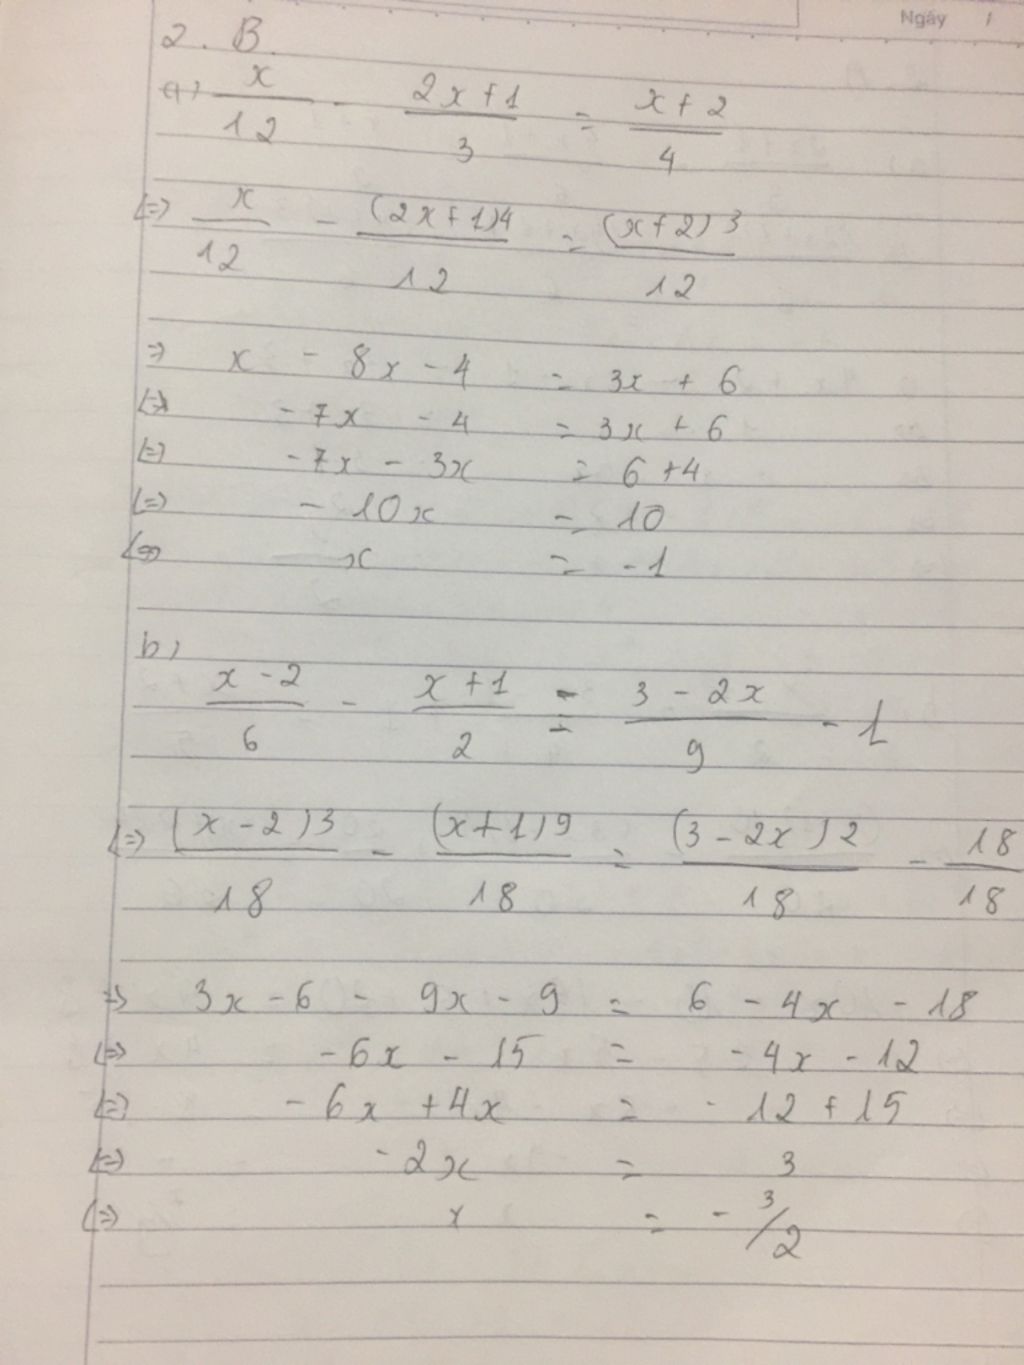 Ngày /
2. B.
a) x/12 - (2x+1)/3 = (x+2)/4
(=) x/12 - (2x+1)4/12 = (x+2)3/12
=> x - 8x - 4 = 3x + 6
(=) -7x - 4 = 3x + 6
(=) -7x - 3x = 6+4
(=) -10x = 10
(=) x = -1
b)
(x-2)/6 - (x+1)/2 = (3-2x)/9 - 1
(=) (x-2)3/18 - (x+1)9/18 = (3-2x)2/18 - 18/18
=> 3x-6 - 9x-9 = 6 - 4x - 18
(=) -6x - 15 = -4x - 12
(=) -6x +4x = -12 + 15
(=) -2x = 3
(=) x = - 3/2